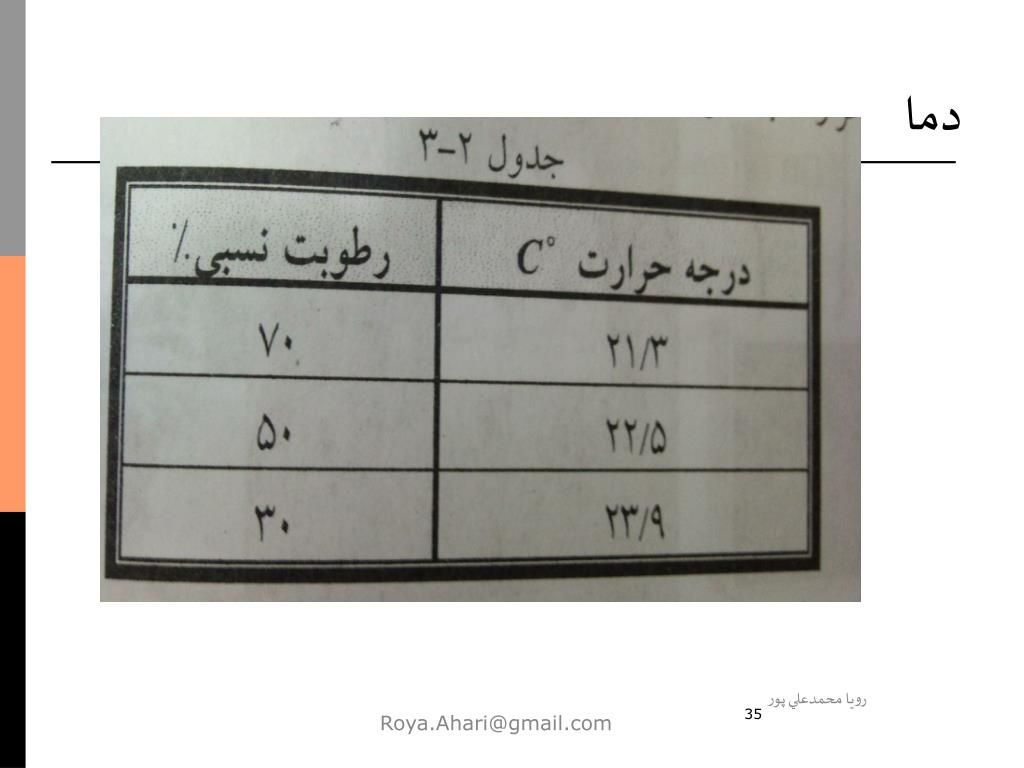 دما
جدول ۲-۳
درجه حرارت C° رطوبت نسبی٪
۲۱/۳ ۷۰
۲۲/۵ ۵۰
۲۳/۹ ۳۰
رویا محمدعلي پور
35
Roya.Ahari@gmail.com